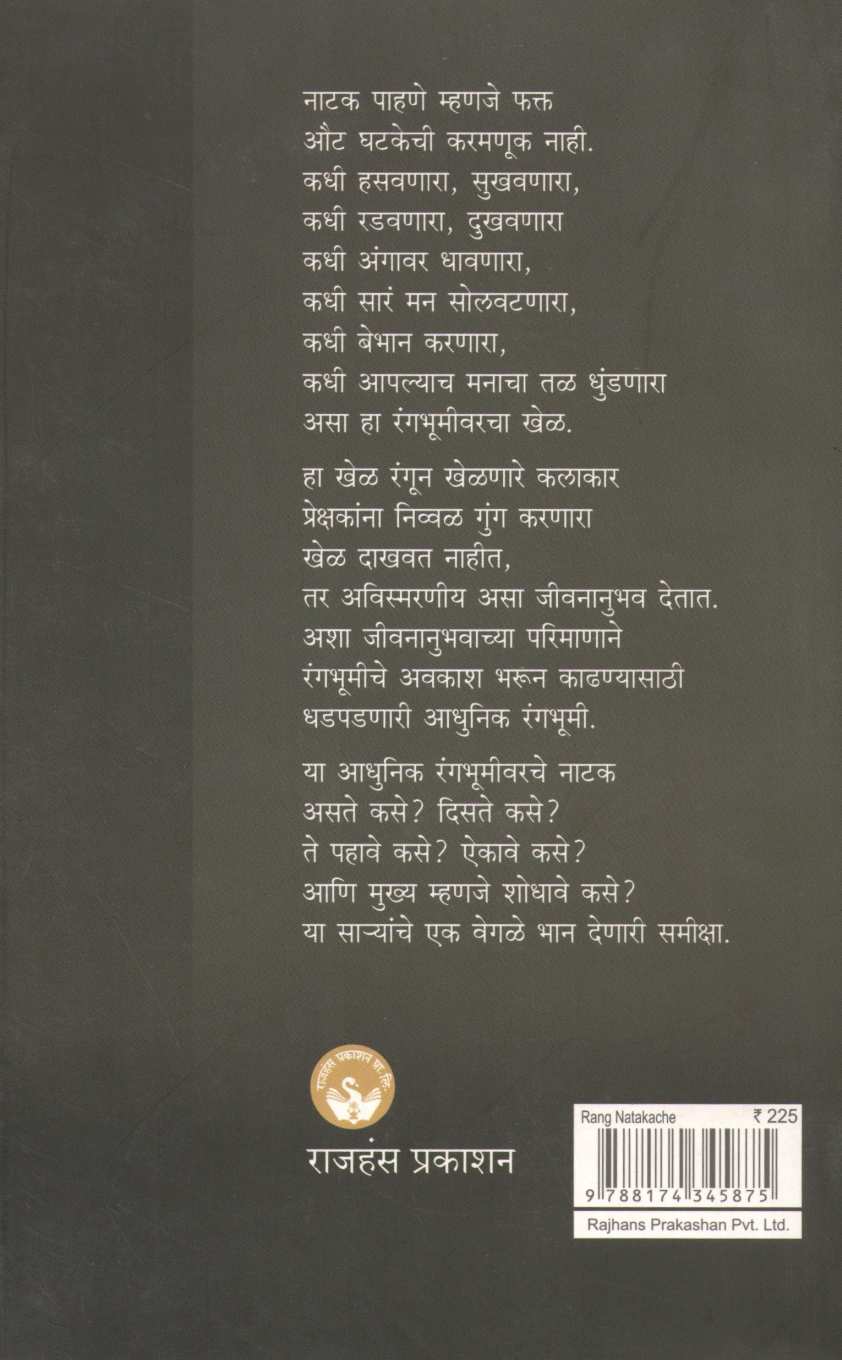 नाटक पाहणे म्हणजे फक्त
औट घटकेची करमणूक नाही.
कधी हसवणारा, सुखवणारा,
कधी रडवणारा, दुखवणारा
कधी अंगावर धावणारा,
कधी सारं मन सोलवटणारा,
कधी बेभान करणारा,
कधी आपल्याच मनाचा तळ धुंडणारा
असा हा रंगभूमीवरचा खेळ.
हा खेळ रंगून खेळणारे कलाकार
प्रेक्षकांना निव्वळ गुंग करणारा
खेळ दाखवत नाहीत,
तर अविस्मरणीय असा जीवनानुभव देतात.
अशा जीवनानुभवाच्या परिमाणाने
रंगभूमीचे अवकाश भरून काढण्यासाठी
धडपडणारी आधुनिक रंगभूमी.
या आधुनिक रंगभूमीवरचे नाटक
असते कसे? दिसते कसे?
ते पहावे कसे? ऐकावे कसे?
आणि मुख्य म्हणजे शोधावे कसे?
या साऱ्यांचे एक वेगळे भान देणारी समीक्षा.
राजहंस प्रकाशन प्रा. लि.
राजहंस प्रकाशन
Rang Natakache ₹ 225
9 788174 345875
Rajhans Prakashan Pvt. Ltd.